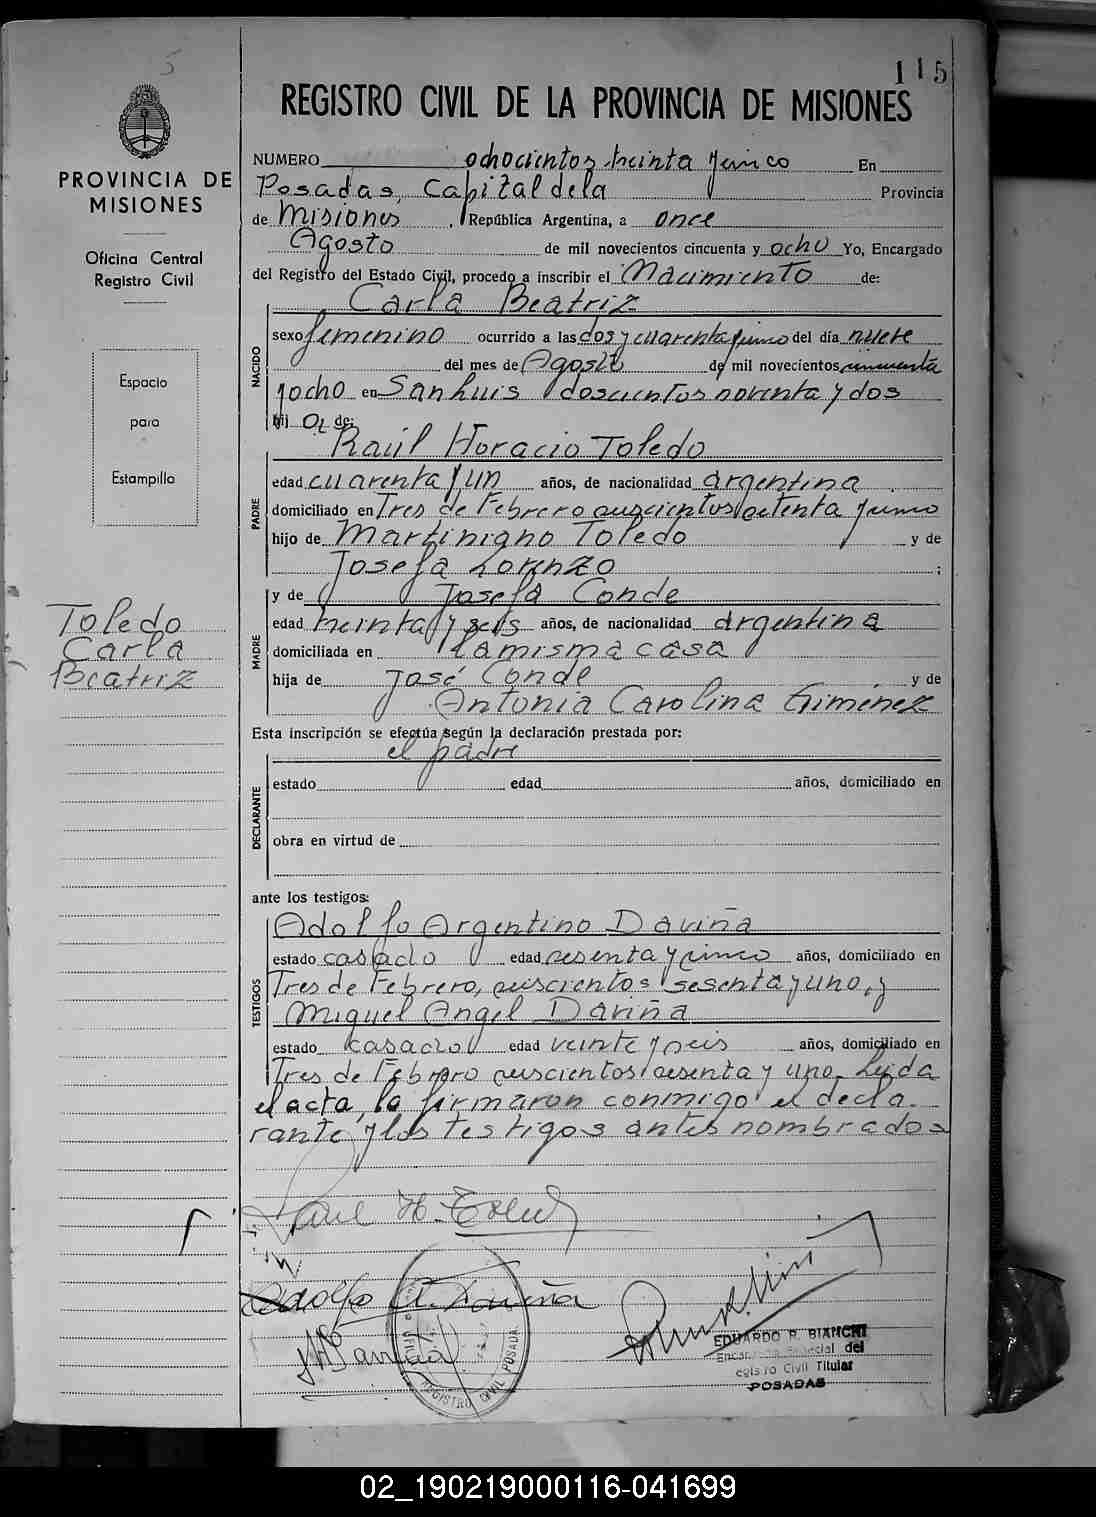 5
115
REGISTRO CIVIL DE LA PROVINCIA DE MISIONES
PROVINCIA DE
MISIONES
Oficina Central
Registro Civil
Espacio
para
Estampilla
Toledo
Carla
Beatriz
NUMERO ochocientos treinta y cinco En
Posadas, Capital de la Provincia
de Misiones, República Argentina, a once
Agosto de mil novecientos cincuenta y ocho Yo, Encargado
del Registro del Estado Civil, procedo a inscribir el Nacimiento de:
Carla Beatriz
NACIDO
sexo femenino ocurrido a las dos y cuarenta y cinco del día nueve
del mes de Agosto de mil novecientos cincuenta
y ocho en San Luis doscientos noventa y dos
hij a de:
Raúl Horacio Toledo
PADRE
edad cuarenta y un años, de nacionalidad argentina
domiciliado en Tres de Febrero seiscientos setenta y cinco
hijo de Martiniano Toledo y de
Josefa Lorenzo ;
y de Josefa Conde
MADRE
edad treinta y seis años, de nacionalidad argentina
domiciliada en la misma casa
hija de José Conde y de
Antonia Carolina Gimenez
Esta inscripción se efectúa según la declaración prestada por:
el padre
DECLARANTE
estado edad años, domiciliado en
obra en virtud de
ante los testigos:
Adolfo Argentino Daviña
TESTIGOS
estado casado edad sesenta y cinco años, domiciliado en
Tres de Febrero, seiscientos sesenta y uno, y
Miguel Angel Daviña
estado casado edad veinte y seis años, domiciliado en
Tres de Febrero seiscientos sesenta y uno. Leida
el acta, la firmaron conmigo el decla-
rante y los testigos antes nombrados
Raul H. Toledo
Adolfo A. Daviña
M A Daviña
REGISTRO CIVIL POSADA
EDUARDO R. BIANCHI
Registro Civil Titular
POSADAS
02_190219000116-041699